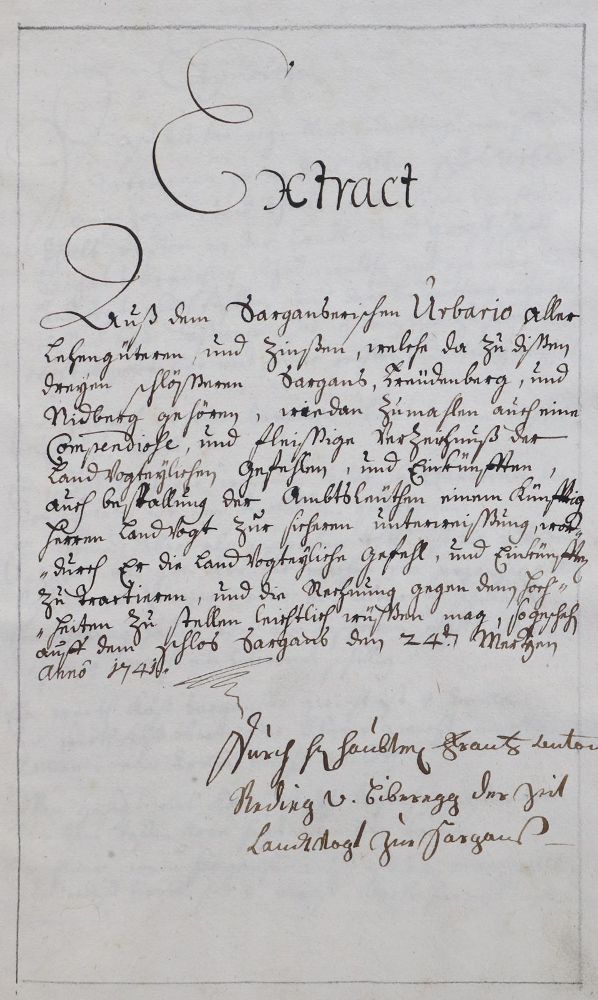 Extract
Auß dem Sarganserischen Urbario aller
Lehengüteren, und Zinßen, welche da zu dißen
dreyen schlößeren Sargans, Freüdenberg, und
Nidberg gehören, wie dan zumahlen auch eine
Compendiose, und fleissige Verzeichnuß der
Landvogteylichen Gefehlen, und Einkünfften,
auch bestallung der Ambtsleüthen einem Künfftig
Herren Landvogt zur sicheren underweissung, wor-
-durch Er die Landvogteyliche Gefehl, und Einkünfften
zu tractieren, und die Rechnung gegen dem Hoch-
-heiten zu stellen leichtlich wüssen mag, so geschehen
auff dem schlos Sargans den 24.ten Mertzen
Anno 1741.
Durch H Haubtm Frantz Anton
Reding v. Biberegg der Zeit
Landtvogt zur Sarganß